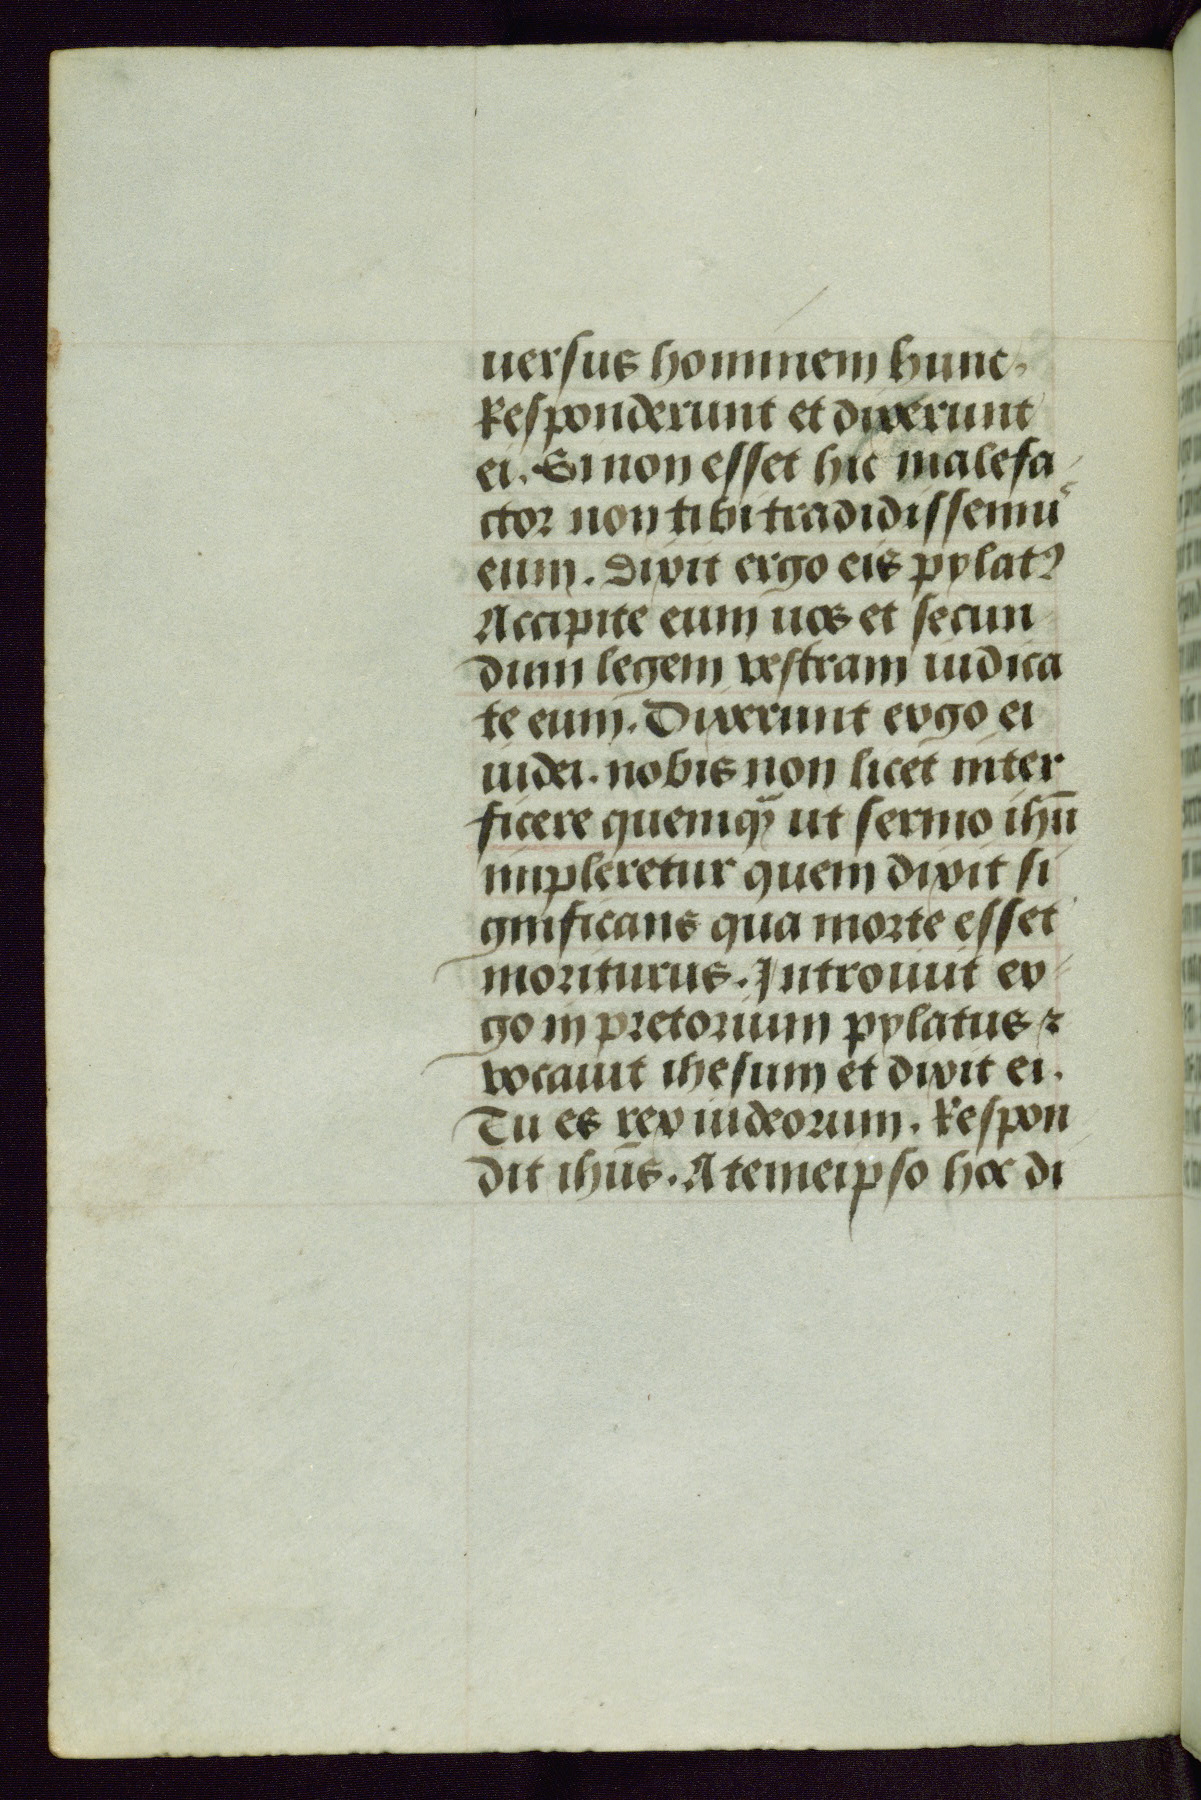 uersus hominem hunc.
Responderunt et dixerunt
ei. Si non esset hic malefa
ctor non tibi tradidissemuˢ
eum. Dixit ergo eis pylatꝰ
Accipite eum uos et secun
dum legem vestram iudica
te eum. Dixerunt ergo ei
iudei. nobis non licet inter
ficere quemqᷓ ut sermo ihū
impleretur quem dixit si
gnificans qua morte esset
moriturus. Introiuit er
go in pretorium pylatus ⁊
vocauit ihesum et dixit ei.
Tu es rex iudeorum. Respon
dit ihūs. A temeipso hoc di